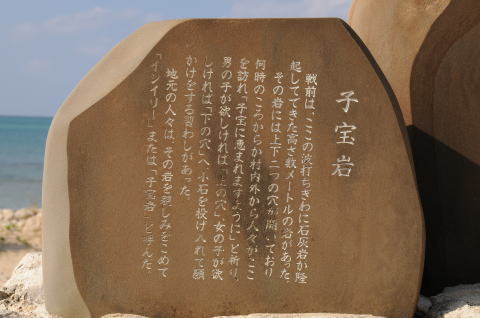 子宝岩
戦前は、ここの波打ちぎわに石灰岩が隆
起してできた高さ数メートルの岩があった。
その岩には上下二つの穴が開いており
何時のころからか村内外から人々がここ
を訪れ「子宝に恵まれますように」と祈り、
男の子が欲しければ「上の穴」、女の子が欲
しければ「下の穴」へ小石を投げ入れて願
かけをする習わしがあった。
地元の人々は、その岩を親しみをこめて
「インイリー」または「子宝岩」と呼んだ。